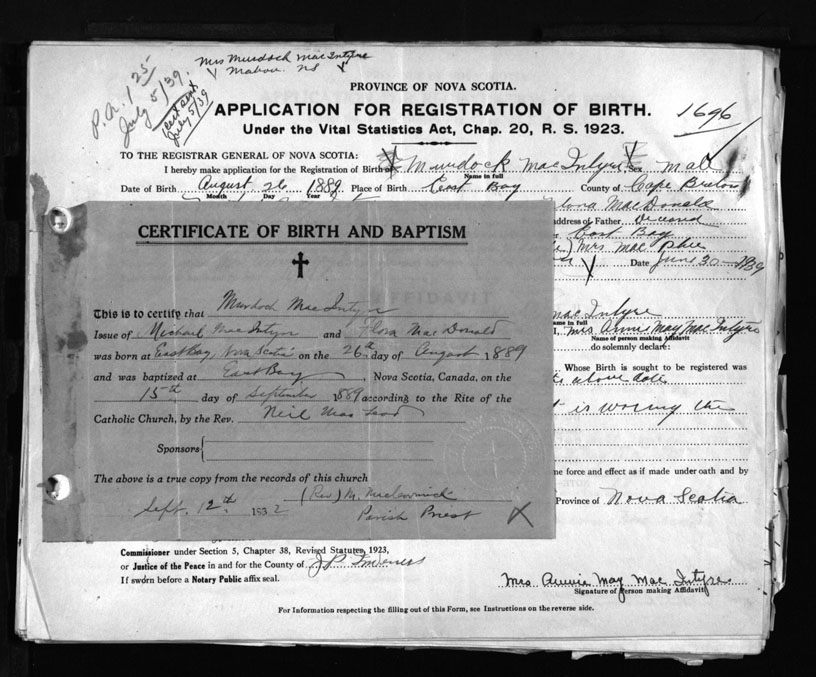 Mrs Murdoch MacIntyre
Mabou NS
P.A. 1 25
July 5/39
July 5/39
PROVINCE OF NOVA SCOTIA.
APPLICATION FOR REGISTRATION OF BIRTH.
Under the Vital Statistics Act, Chap. 20, R. S. 1923.
1696
TO THE REGISTRAR GENERAL OF NOVA SCOTIA:
I hereby make application for the Registration of Birth of Murdock MacIntyre, Sex Male
Name in full
Date of Birth August 26 1889 Place of Birth East Bay County of Cape Breton
Month Day Year
Flora MacDonald
address of Father
East Bay
Mrs. Mac Phee
Date June 30 1939
CERTIFICATE OF BIRTH AND BAPTISM
This is to certify that Murdoch MacIntyre
Issue of Michael MacIntyre and Flora MacDonald
was born at East Bay, Nova Scotia on the 26th day of August 1889
and was baptized at East Bay, Nova Scotia, Canada, on the
15th day of September 1889 according to the Rite of the
Catholic Church, by the Rev. Neil MacLeod
Sponsors
The above is a true copy from the records of this church
(Rev) M.
Sept. 12th 1932 Parish Priest
AFFIDAVIT
MacIntyre
Name in full
I, Mrs Annie May MacIntyre
Name of person making Affidavit
do solemnly declare:
Whose Birth is sought to be registered was
above date
is the
me force and effect as if made under oath and by
Province of Nova Scotia
Commissioner under Section 5, Chapter 38, Revised Statutes, 1923,
or Justice of the Peace in and for the County of J.P. Inverness
If sworn before a Notary Public affix seal.
Mrs Annie May MacIntyre
Signature of Person making Affidavit
For Information respecting the filling out of this Form, see Instructions on the reverse side.